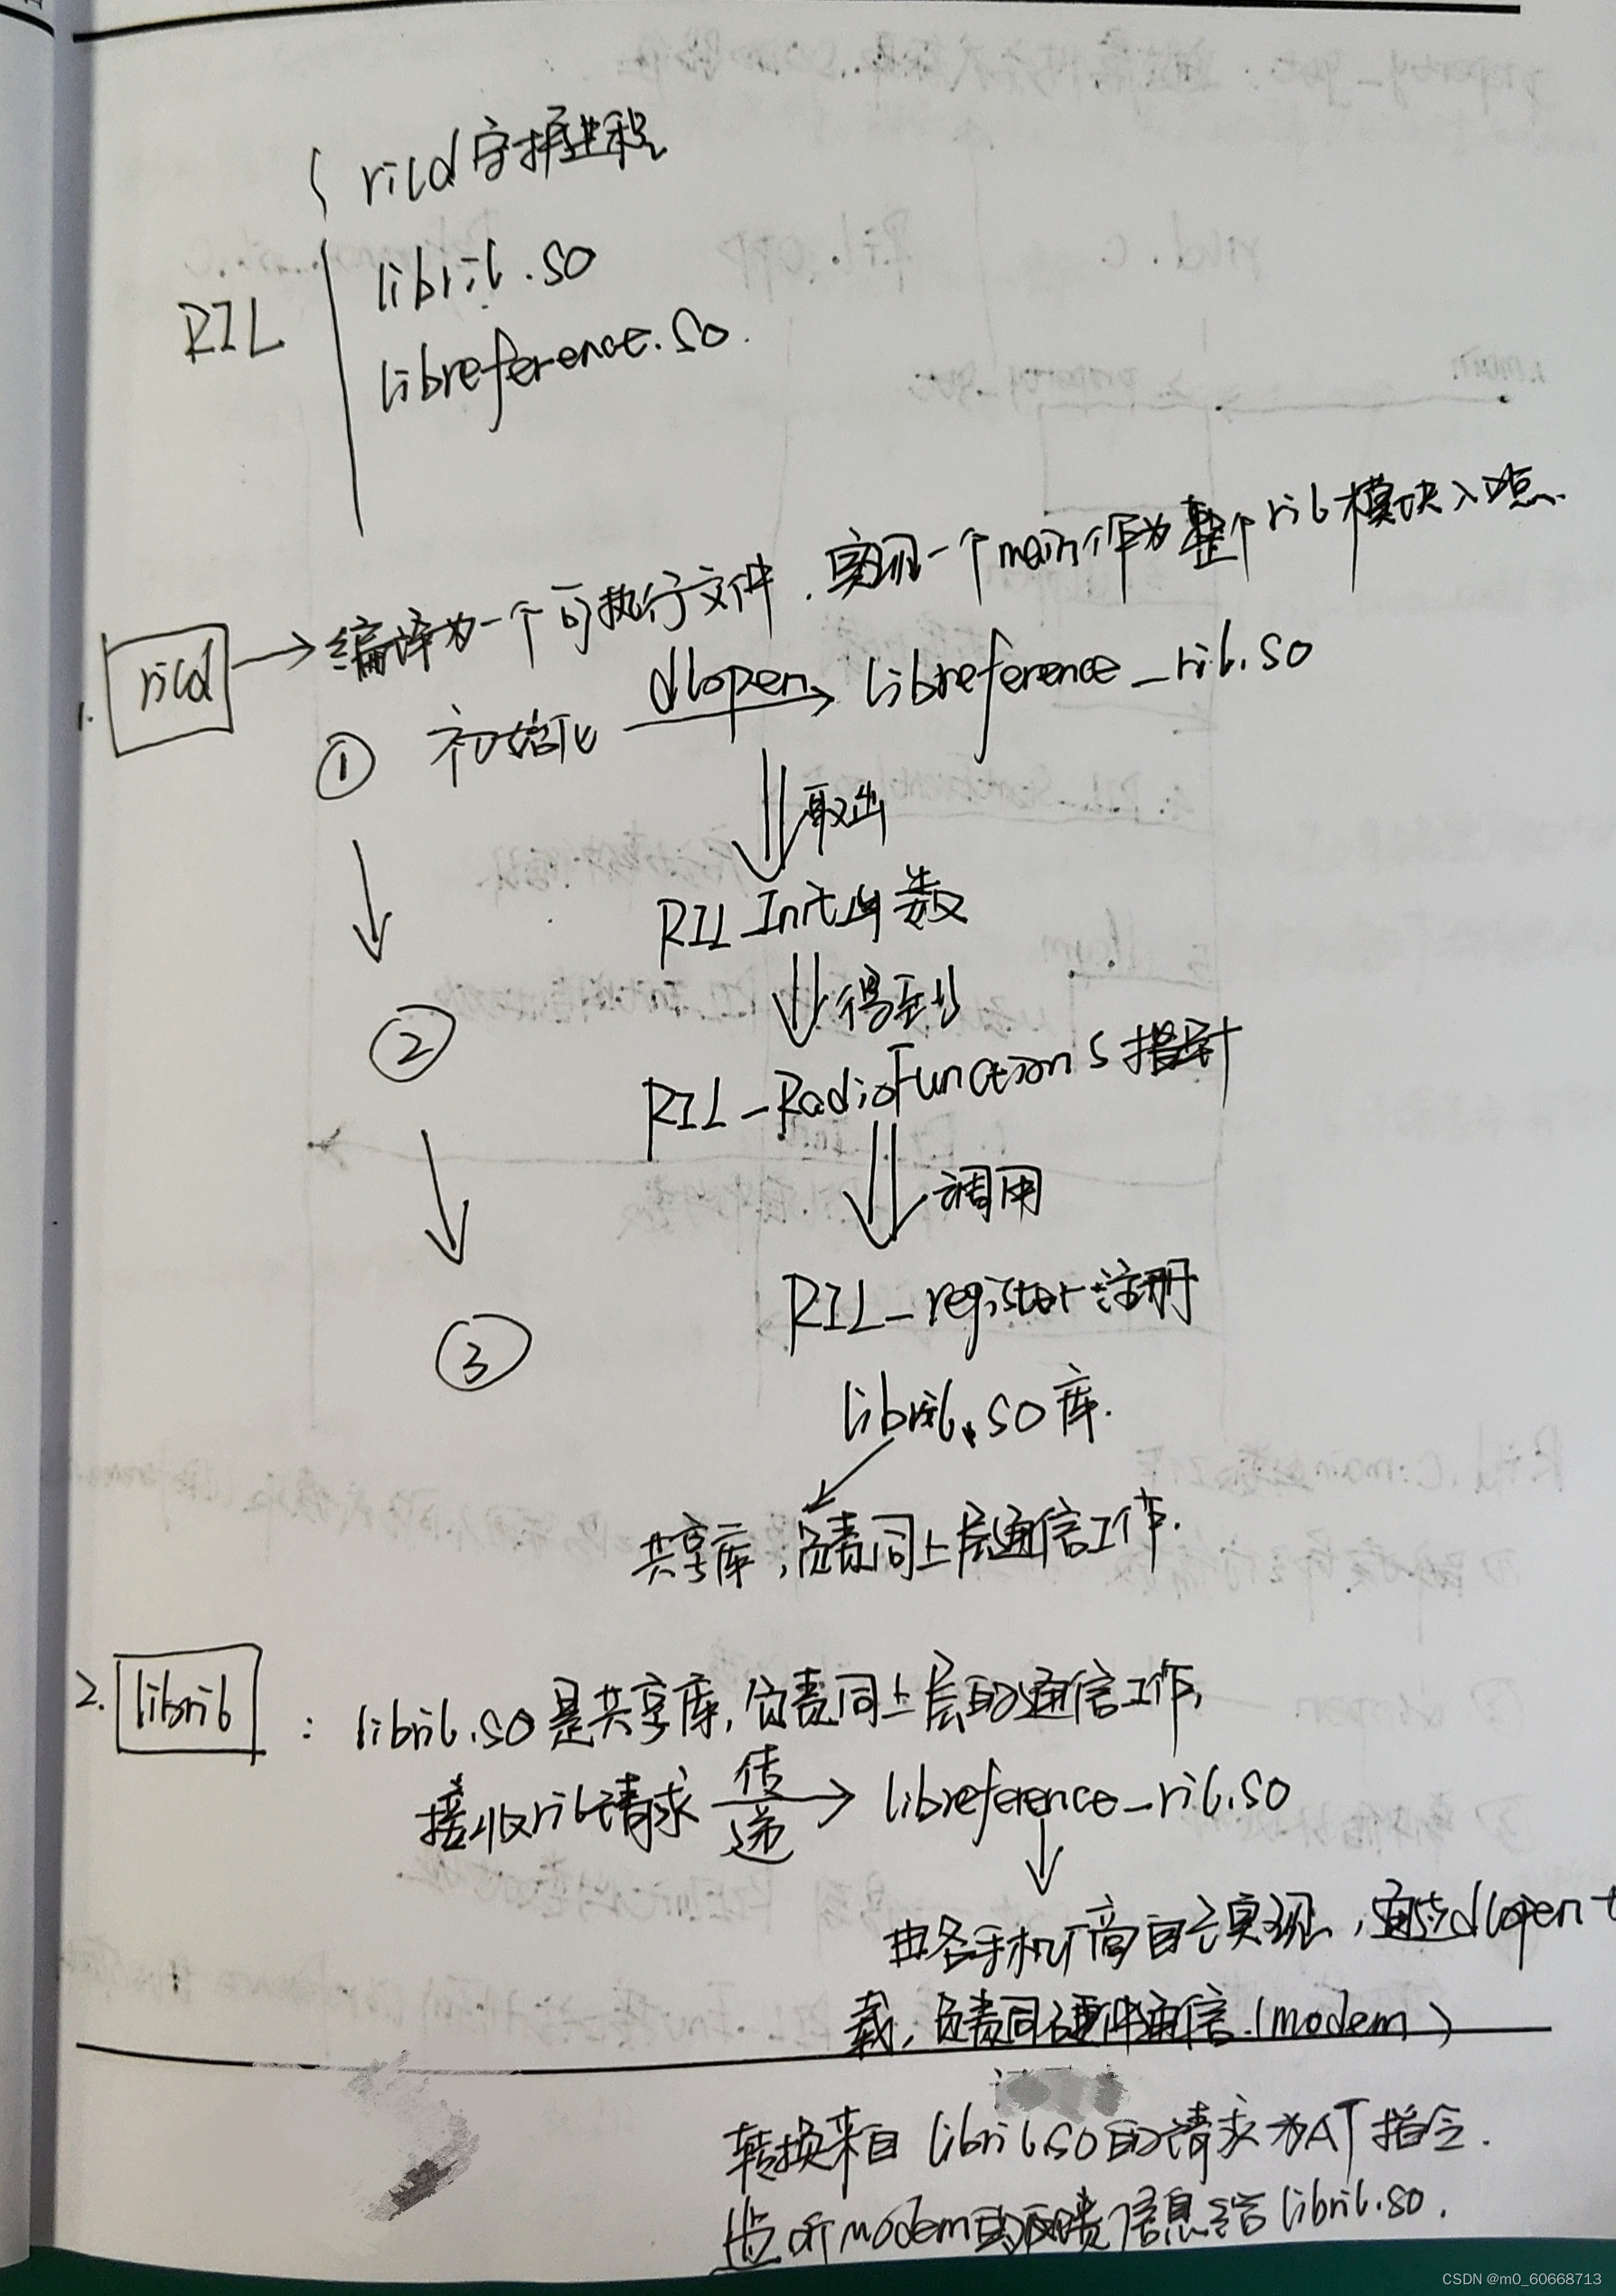 rild守护进程
libril.so
RIL
libreference.so.
1. rild → 编译为一个可执行文件.实现一个main作为整个ril模块入口点.
① 初始化 dlopen → libreference_ril.so
取出
RIL_Init函数
得到
②
RIL_RadioFunctions指针
调用
RIL_register注册
③
libril.so库.
共享库,负责同上层通信工作.
2. libril : libril.so是共享库,负责同上层的通信工作,
接收ril请求 传递 → libreference_ril.so
由各手机厂商自己实现,通过dlopen
载,负责同硬件通信.(modem)
转换来自libril.so的请求为AT指令.
监听modem的反馈信息给libril.so.
CSDN @m0_60668713